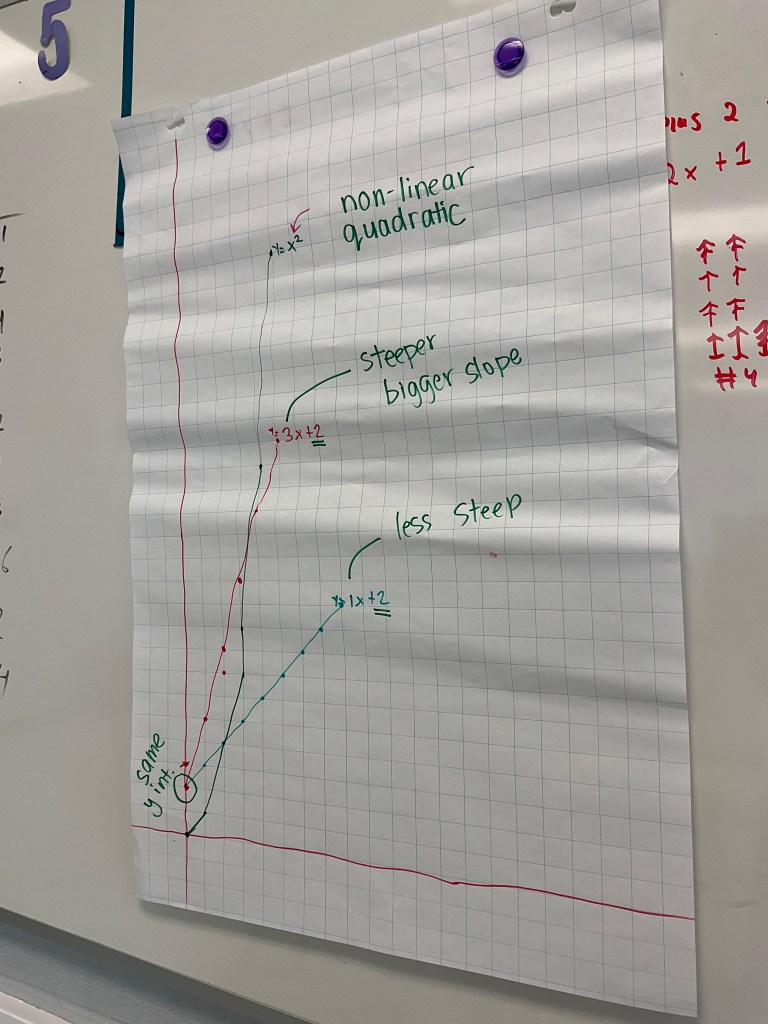 5
non-linear
quadratic
y=x²
steeper
bigger slope
y=3x+2
less steep
y=1x+2
same
y int.
2
2x +1
#4
1
2
4
2
6
4